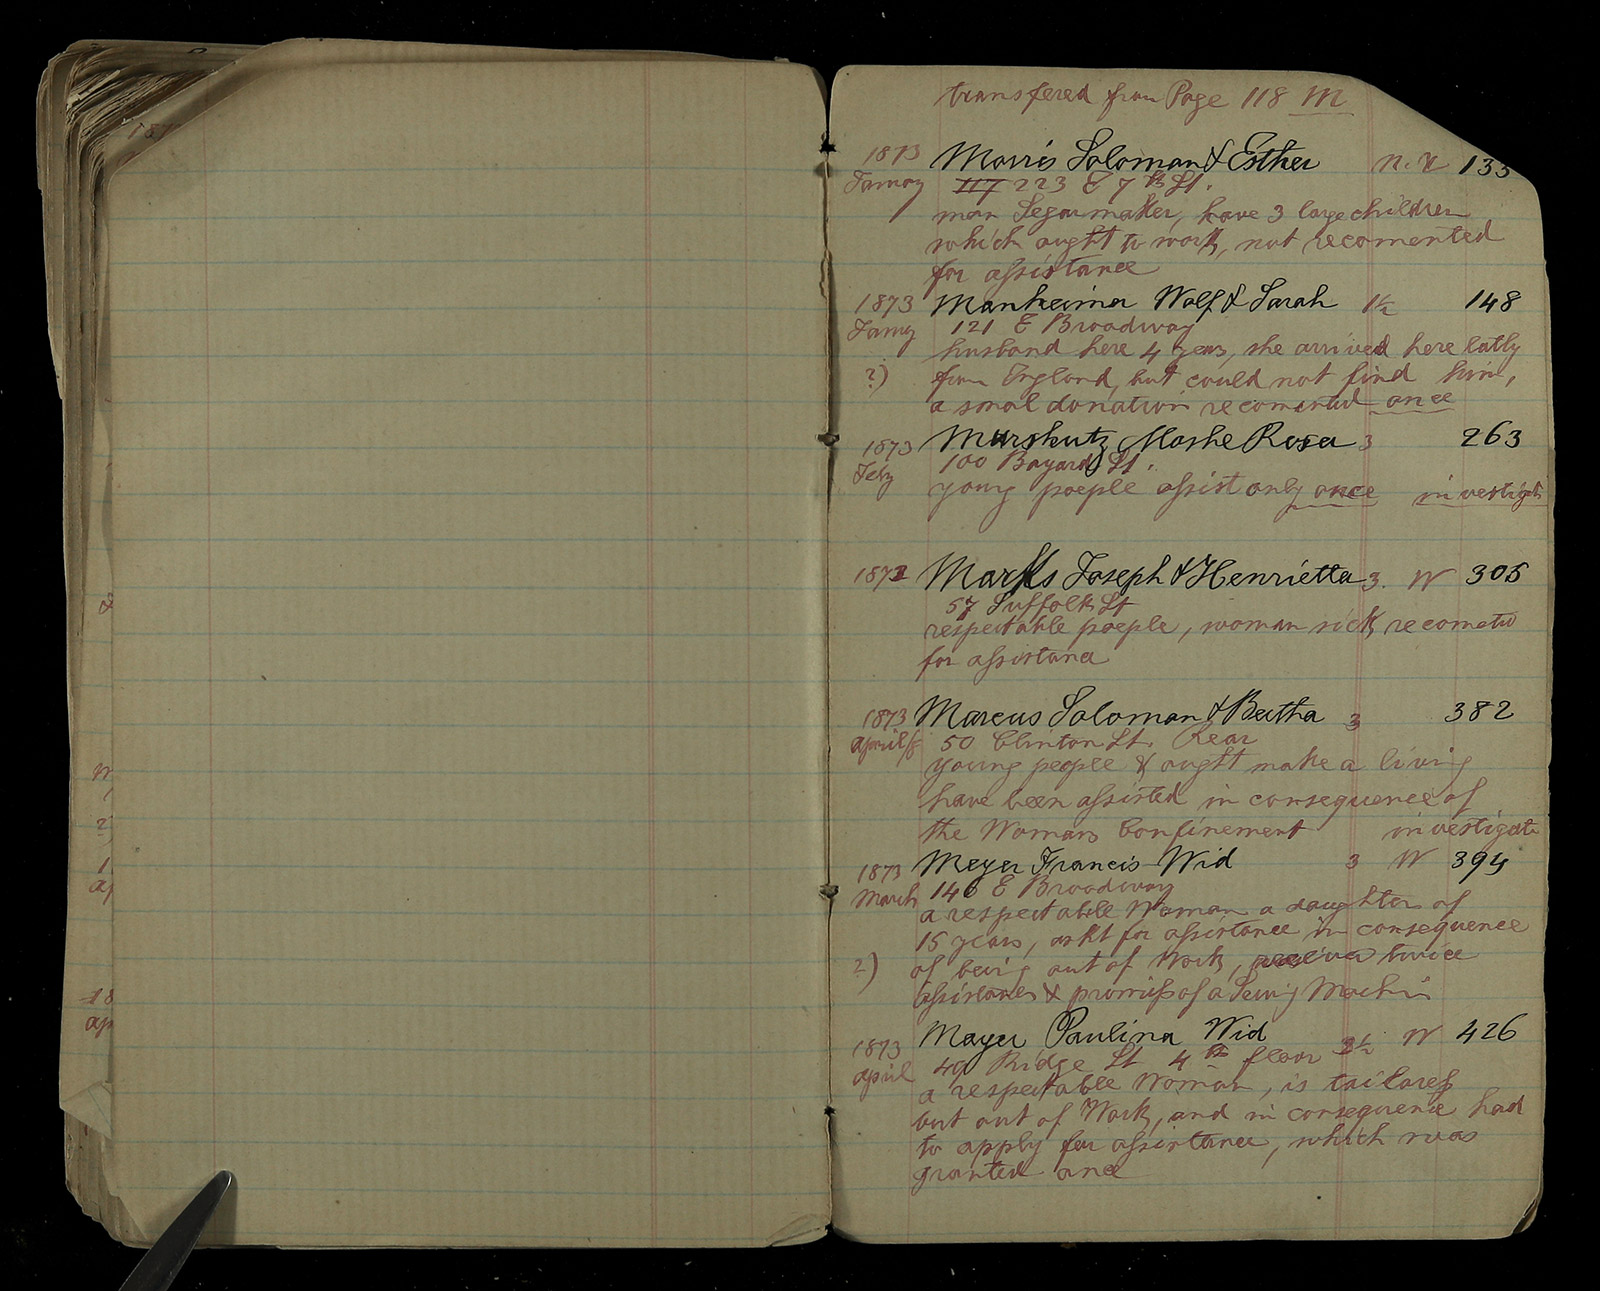 transfered from Page 118 M
1873 Morris Soloman & Esther N.Y 133
Januay 117 223 E 7th St.
man Segarmaker, have 3 large children
which ought to work, not recomented
for assistance
1873 Manheimer Wolf & Sarah 1½ 148
Januy 121 E Broadway
husband here 4 years, she arrived here latly
?) from England, but could not find him,
a smal donation recomented once
1873 Murshutz Moshe Rosa 3 263
Feby 100 Bayard St.
young poeple assist only once investigate
1872 Marks Joseph & Henrietta 3. W 305
57 Suffolk St
respectable poeple, woman sick, recometd
for assistance
1873 Marcus Soloman & Bertha 3 382
April/8 50 Clinton St. Rear
young people & ought make a living
have been assisted in consequence of
the Womans Confinement investigate
1873 Meyer Francis Wid 3 W 394
March 146 E Broadway
a respectable Woman a daughter of
15 years, askt for assistance in consequence
?) of being out of Work, twice
assistance & promiss of a Sewing Machin
1873 Mayer Paulina Wid W 426
April 49 Ridge St 4th floor
a respectable Woman, is tailoress
but out of Work, and in consequence had
to apply for assistance, which was
granted once